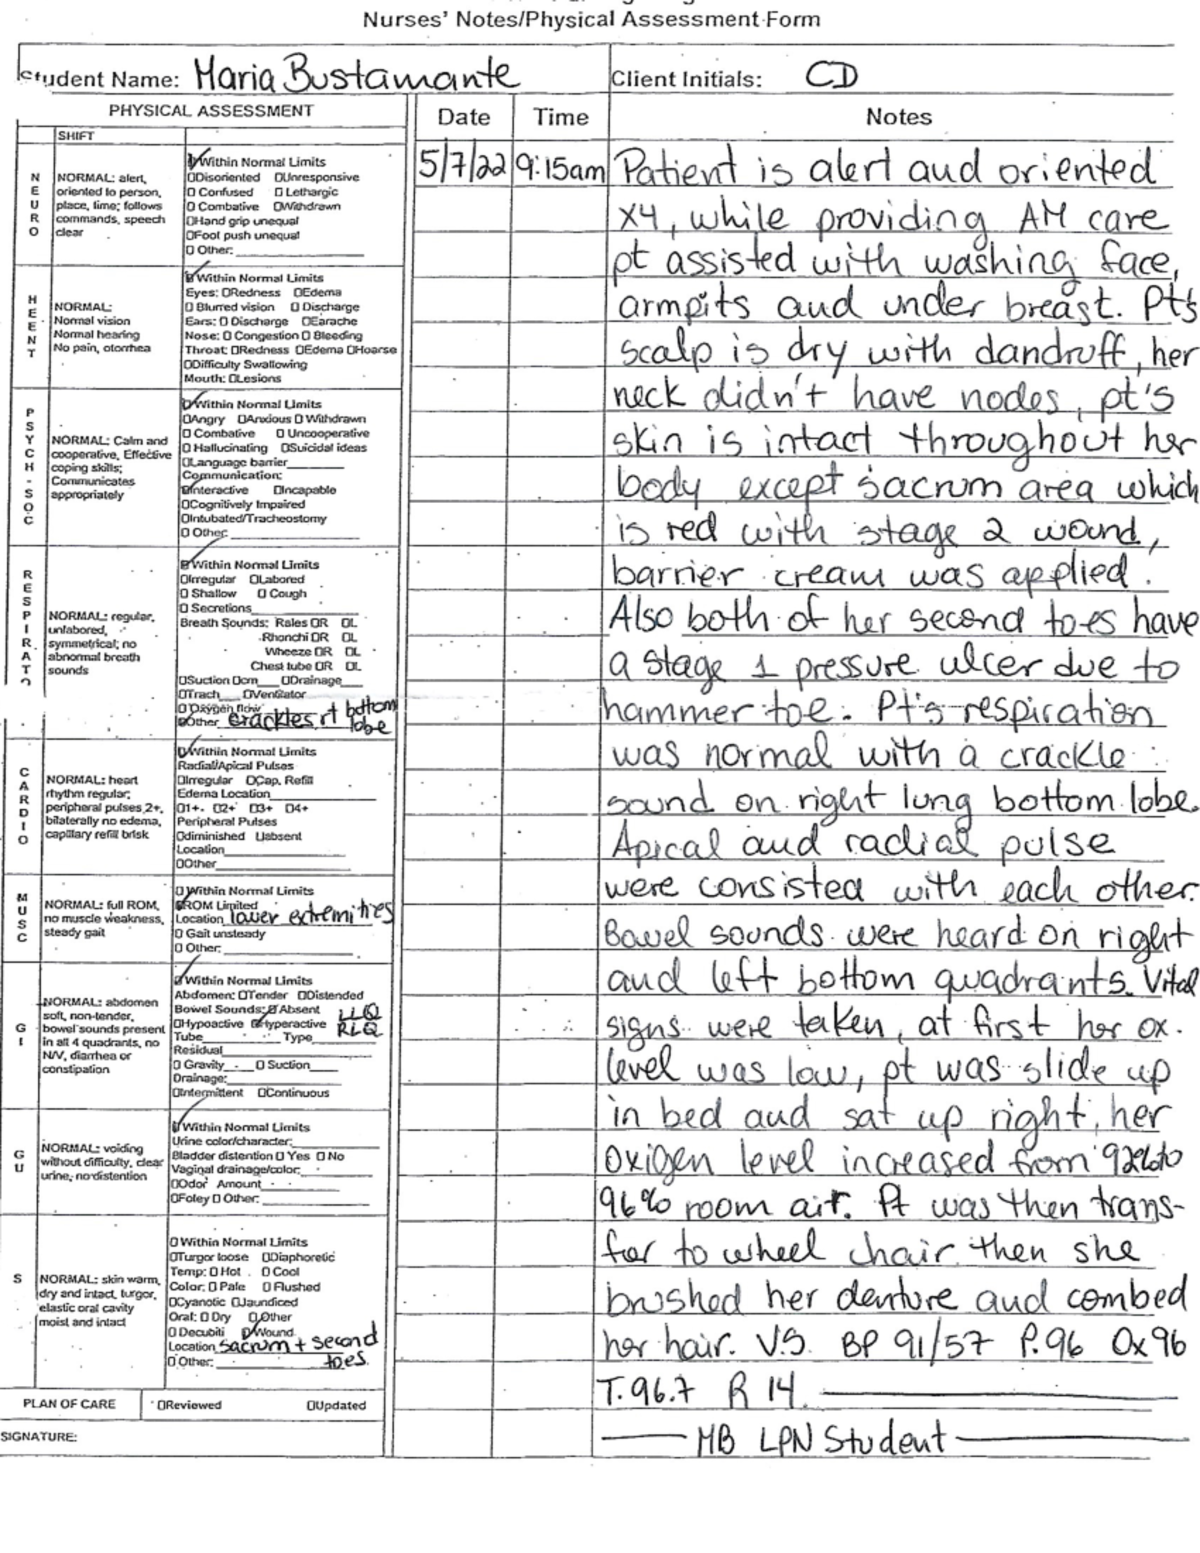 Nurses' Notes/Physical Assessment Form
Student Name: Maria Bustamante
Client Initials: CD
PHYSICAL ASSESSMENT
Date
Time
Notes
SHIFT
NEURO
NORMAL: alert,
oriented to person,
place, time; follows
commands, speech
clear
Within Normal Limits
Disoriented Unresponsive
Confused Lethargic
Combative Withdrawn
Hand grip unequal
Foot push unequal
Other:
HEENT
NORMAL:
Normal vision
Normal hearing
No pain, otorrhea
Within Normal Limits
Eyes: Redness Edema
Blurred vision Discharge
Ears: Discharge Earache
Nose: Congestion Bleeding
Throat: Redness Edema Hoarse
Difficulty Swallowing
Mouth: Lesions
PSYCH-SOC
NORMAL: Calm and
cooperative, Effective
coping skills;
Communicates
appropriately
Within Normal Limits
Angry Anxious Withdrawn
Combative Uncooperative
Hallucinating Suicidal ideas
Language barrier
Communication:
Interactive Incapable
Cognitively Impaired
Intubated/Tracheostomy
Other:
RESPIRAT
NORMAL: regular,
unlabored,
symmetrical; no
abnormal breath
sounds
Within Normal Limits
Irregular Labored
Shallow Cough
Secretions
Breath Sounds: Rales R L
Rhonchi R L
Wheeze R L
Chest tube R L
Suction cm Drainage
Trach Ventilator
Oxygen flow
Other crackles rt bottom
lobe
CARDIO
NORMAL: heart
rhythm regular;
peripheral pulses 2+,
bilaterally no edema,
capillary refill brisk
Within Normal Limits
Radial/Apical Pulses
Irregular Cap. Refill
Edema Location
1+ 2+ 3+ 4+
Peripheral Pulses
diminished absent
Location
Other
MUSC
NORMAL: full ROM,
no muscle weakness,
steady gait
Within Normal Limits
ROM Limited
Location lower extremities
Gait unsteady
Other:
GI
NORMAL: abdomen
soft, non-tender,
bowel sounds present
in all 4 quadrants, no
N/V, diarrhea or
constipation
Within Normal Limits
Abdomen: Tender Distended
Bowel Sounds: Absent LLQ
Hypoactive Hyperactive RLQ
Tube Type
Residual
Gravity Suction
Drainage:
Intermittent Continuous
GU
NORMAL: voiding
without difficulty, clear
urine, no distention
Within Normal Limits
Urine color/character:
Bladder distention Yes No
Vaginal drainage/color
Odor Amount
Foley Other:
S
NORMAL: skin warm,
dry and intact, turgor,
elastic oral cavity
moist and intact
Within Normal Limits
Turgor loose Diaphoretic
Temp: Hot Cool
Color: Pale Flushed
Cyanotic Jaundiced
Oral: Dry Other
Decubiti Wound
Location sacrum + second
Other: toes
PLAN OF CARE
Reviewed Updated
SIGNATURE:
5/7/22 9:15am Patient is alert and oriented
X4, while providing AM care
pt assisted with washing face,
armpits and under breast. Pt's
scalp is dry with dandruff, her
neck didn't have nodes, pt's
skin is intact throughout her
body except sacrum area which
is red with stage 2 wound,
barrier cream was applied.
Also both of her second toes have
a stage 1 pressure ulcer due to
hammer toe. Pt's respiration
was normal with a crackle
sound on right lung bottom lobe.
Apical and radial pulse
were consisted with each other.
Bowel sounds were heard on right
and left bottom quadrants. Vital
signs were taken, at first her ox.
level was low, pt was slide up
in bed and sat up right, her
oxigen level increased from 92% to
96% room air. Pt was then trans-
fer to wheel chair then she
brushed her denture and combed
her hair. V.S. BP 91/57 P.96 Ox 96
T. 96.7 R 14
MB LPN Student